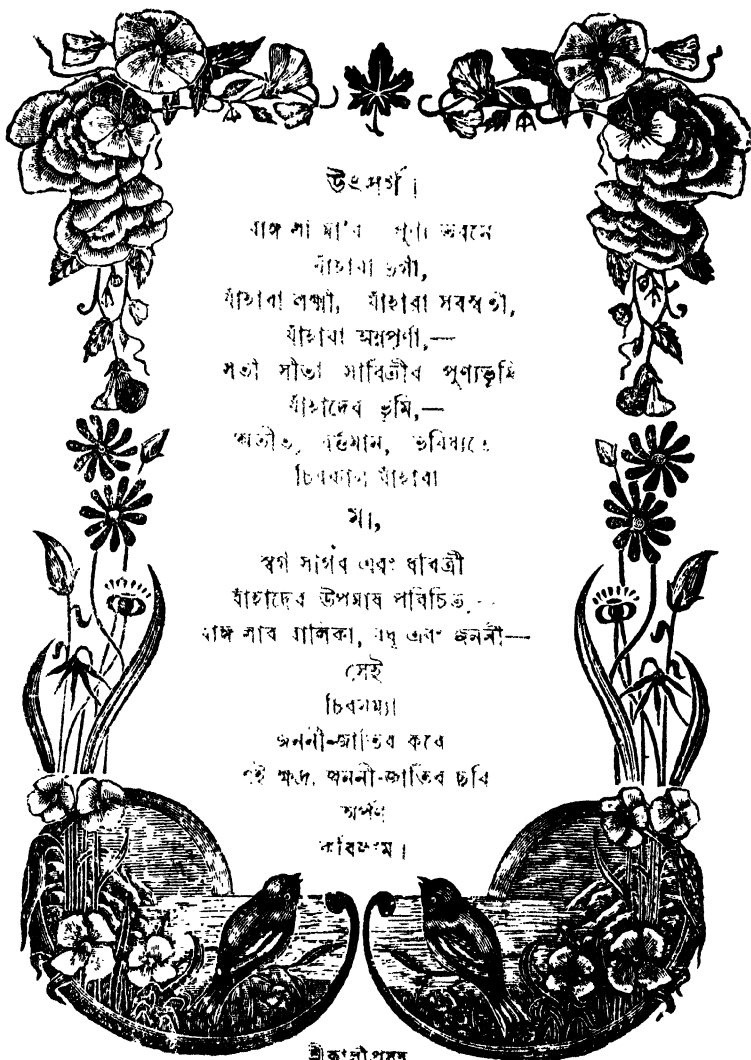 উৎসর্গ।
বাঙ্গলা মা'ব পুণ্য ভবনে
যাঁহাবা ভগ্নী,
যাঁহাবা লক্ষ্মী, যাঁহারা সবস্বতী,
যাঁহাবা অন্নপূর্ণা,—
সতী সীতা সাবিত্রীব পুণ্যভূমি
যাঁহাদেব ভূমি,—
অতীত, বর্ত্তমান, ভবিষ্যতে
চিবকাল যাঁহাবা
মা,
স্বর্গ সাগব এবং ধবিত্রী
যাঁহাদেব উপমায পবিচিত,—
বাঙ্গলাব বালিকা, বধূ এবং জননী—
সেই
চিবনম্যা
জননী-জাতিব কবে
এই ক্ষুদ্র জননী-জাতিব ছবি
অর্পণ
কবিলাম।
শ্রীকালীপ্রসন্ন